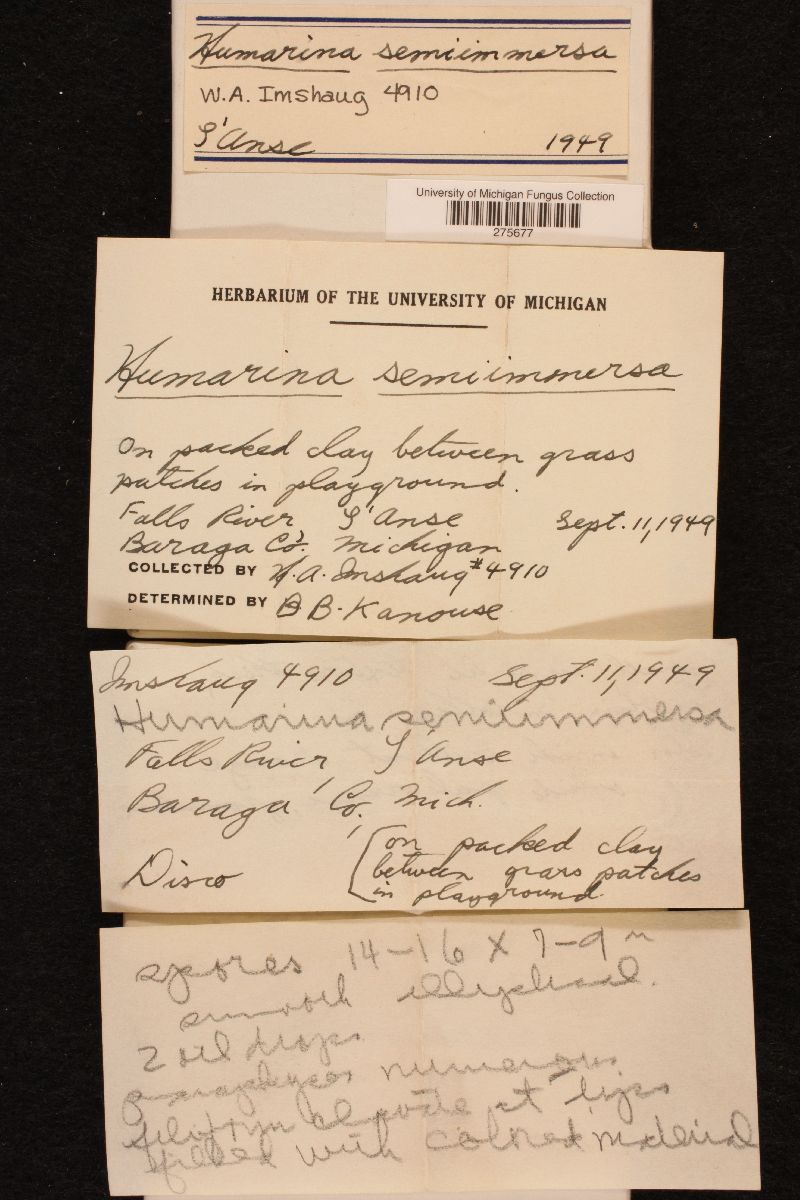 Humarina semiimmersa
W.A. Imshaug 4910
L'Anse 1949
University of Michigan Fungus Collection
275677
HERBARIUM OF THE UNIVERSITY OF MICHIGAN
Humarina semiimmersa
On packed clay between grass
patches in playground.
Falls River L'Anse Sept. 11, 1949
Baraga Co. Michigan
COLLECTED BY H.A. Imshaug #4910
DETERMINED BY B B. Kanouse
Imshaug 4910 Sept. 11, 1949
Humarina semiimmersa
Falls River, L'Anse
Baraga Co. Mich.
Disco (on packed clay
between grass patches
in playground
spores 14-16 X 7-9 m
smooth ellipsoid.
2 oil drops
paraphyses numerous
clavate at tips
filled with colored material